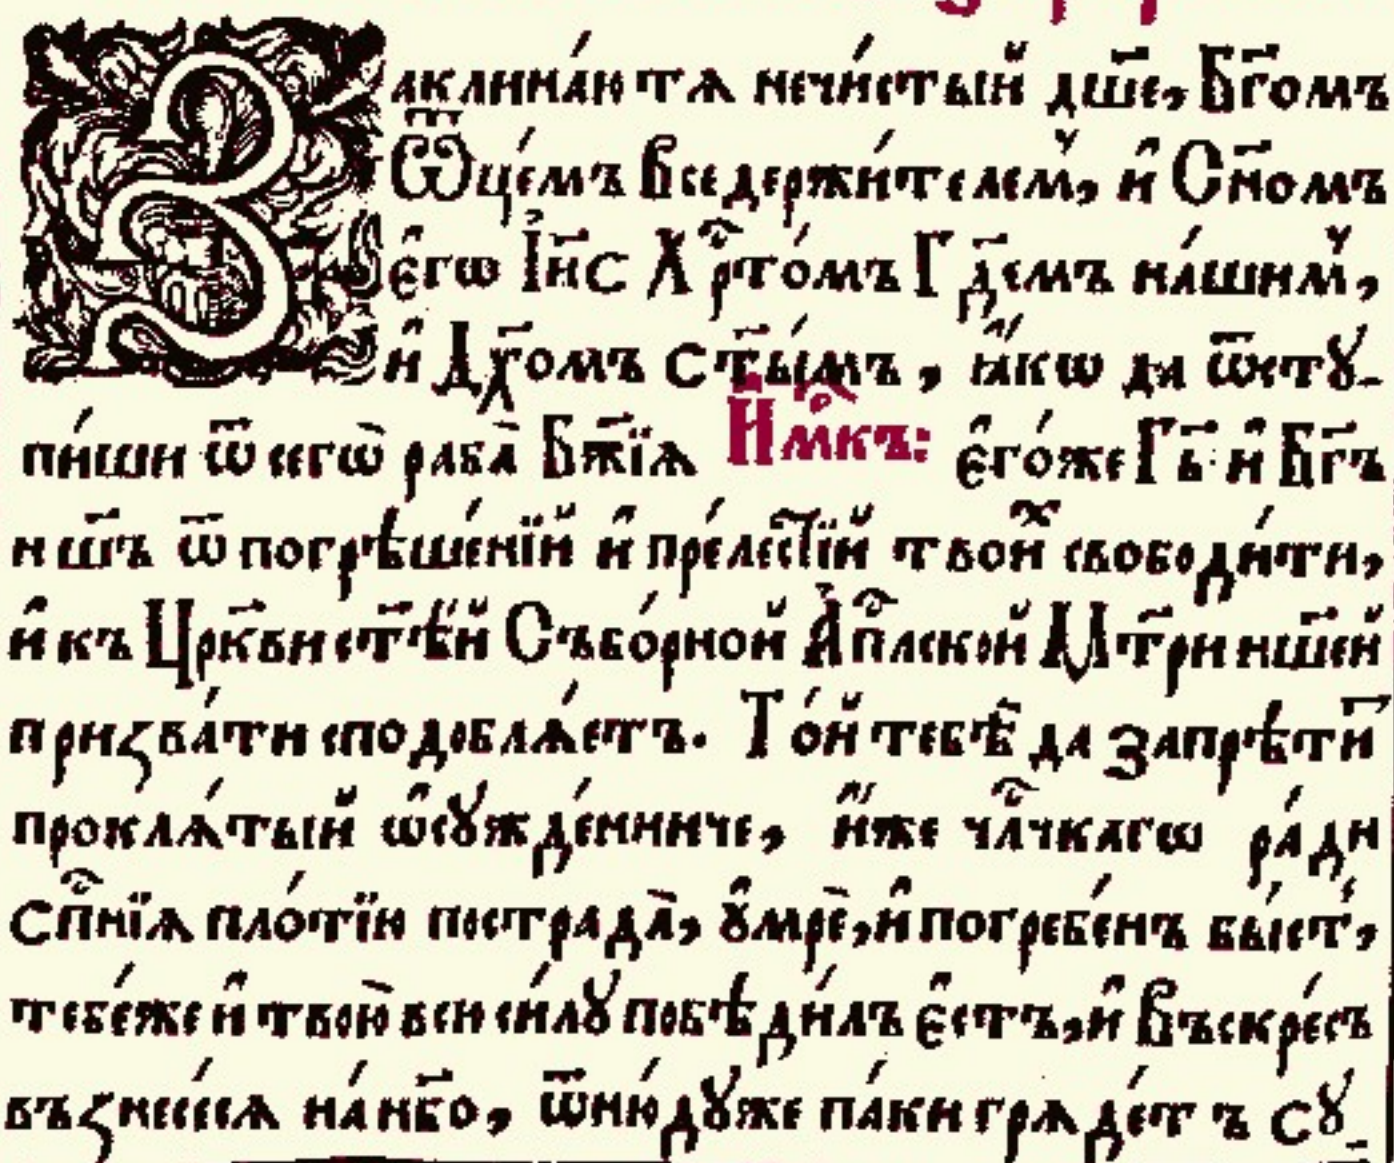 Заклина́ю тѧ нечи́стый дш҃е, Бг҃омъ
Ѿце́мъ вседержи́телем̾, и҆ Сн҃омъ
є҆гѡ̀ І҆и҃с Хр҇то́мъ Гд҃емъ на́шим̾,
и҆ Дх҃омъ ст҃ы́мъ, ꙗ҆́кѡ да ѿстꙋ-
пи́ши ѿ сегѡ̀ раба̀ Бж҃їѧ И҆м҇къ: є҆го́же Гь҃ и҆ Бг҃ъ
нш҃ъ ѿ погрѣше́нїй и҆ пре́лестїй твои҆х̾ свободи́ти,
и҆ къ Цр҃кви ст҃ѣ́й Съборной А҆п҇лской Мт҃ри нш҃ей
призва́ти сподоблѧ́етъ. То́й тебѣ̀ да запрѣти́тъ
проклѧ́тый ѡ҆сꙋжде́нниче, и҆́же чл҇чкагѡ ра́ди
сп҇нїѧ пло́тїю пострада̀, ꙋ҆мрѐ, и҆ погребе́нъ бы́ст̾,
тебе́же и҆ твою̀ всю си́лꙋ побѣди́лъ є҆стъ, и҆ въскре́съ
възнесе́сѧ на́ нб҃о, ѿню́дꙋже па́ки грѧде́тъ сꙋ